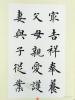 最吉祥奉養
父母親愛護
妻與子從業